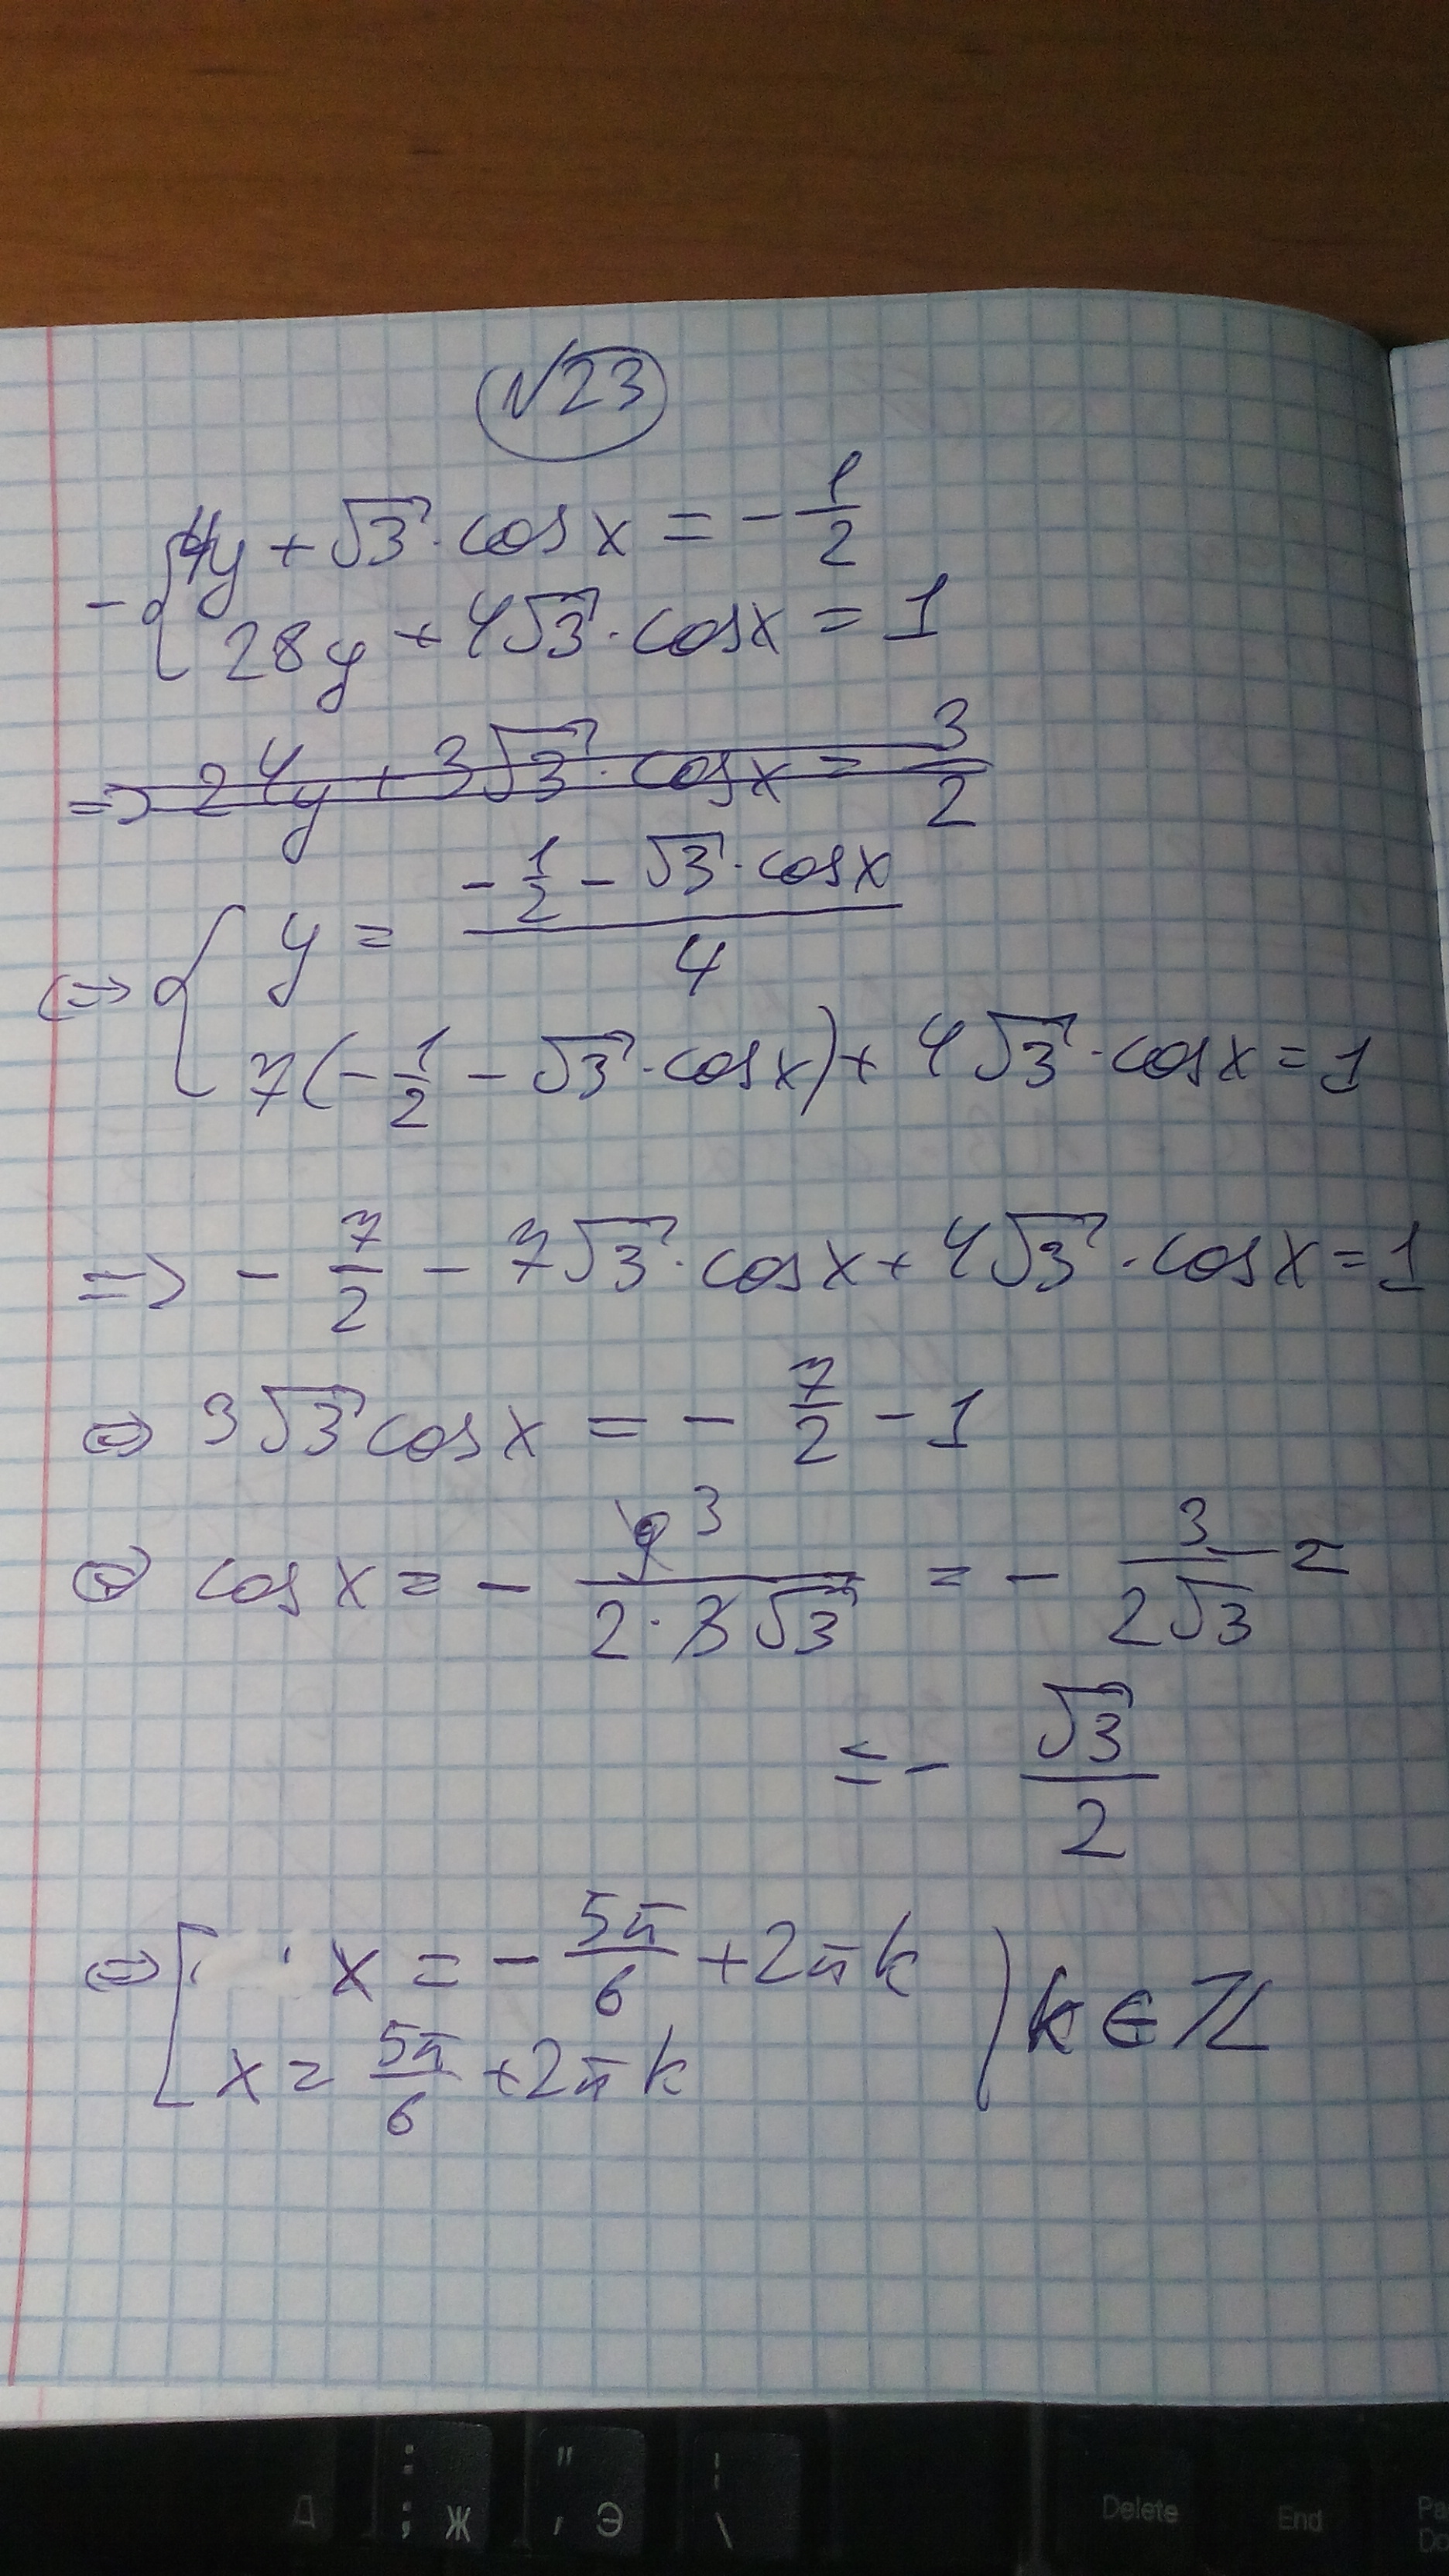 №23
- { 4y + √3 · cos x = - 1/2
28y + 4√3 · cos x = 1
=> 24y + 3√3 · cos x = 3/2
<=> { y = (- 1/2 - √3 · cos x) / 4
7(- 1/2 - √3 · cos x) + 4√3 · cos x = 1
=> - 7/2 - 7√3 · cos x + 4√3 · cos x = 1
<=> 3√3 cos x = - 7/2 - 1
<=> cos x = - 9 3 / (2 · 3√3) = - 3 / (2√3) =
= - √3 / 2
<=> [ x = - 5π/6 + 2πk ) k ∈ ℤ
x = 5π/6 + 2πk
; : Ж
" ' Э
| \
Д
Delete
End